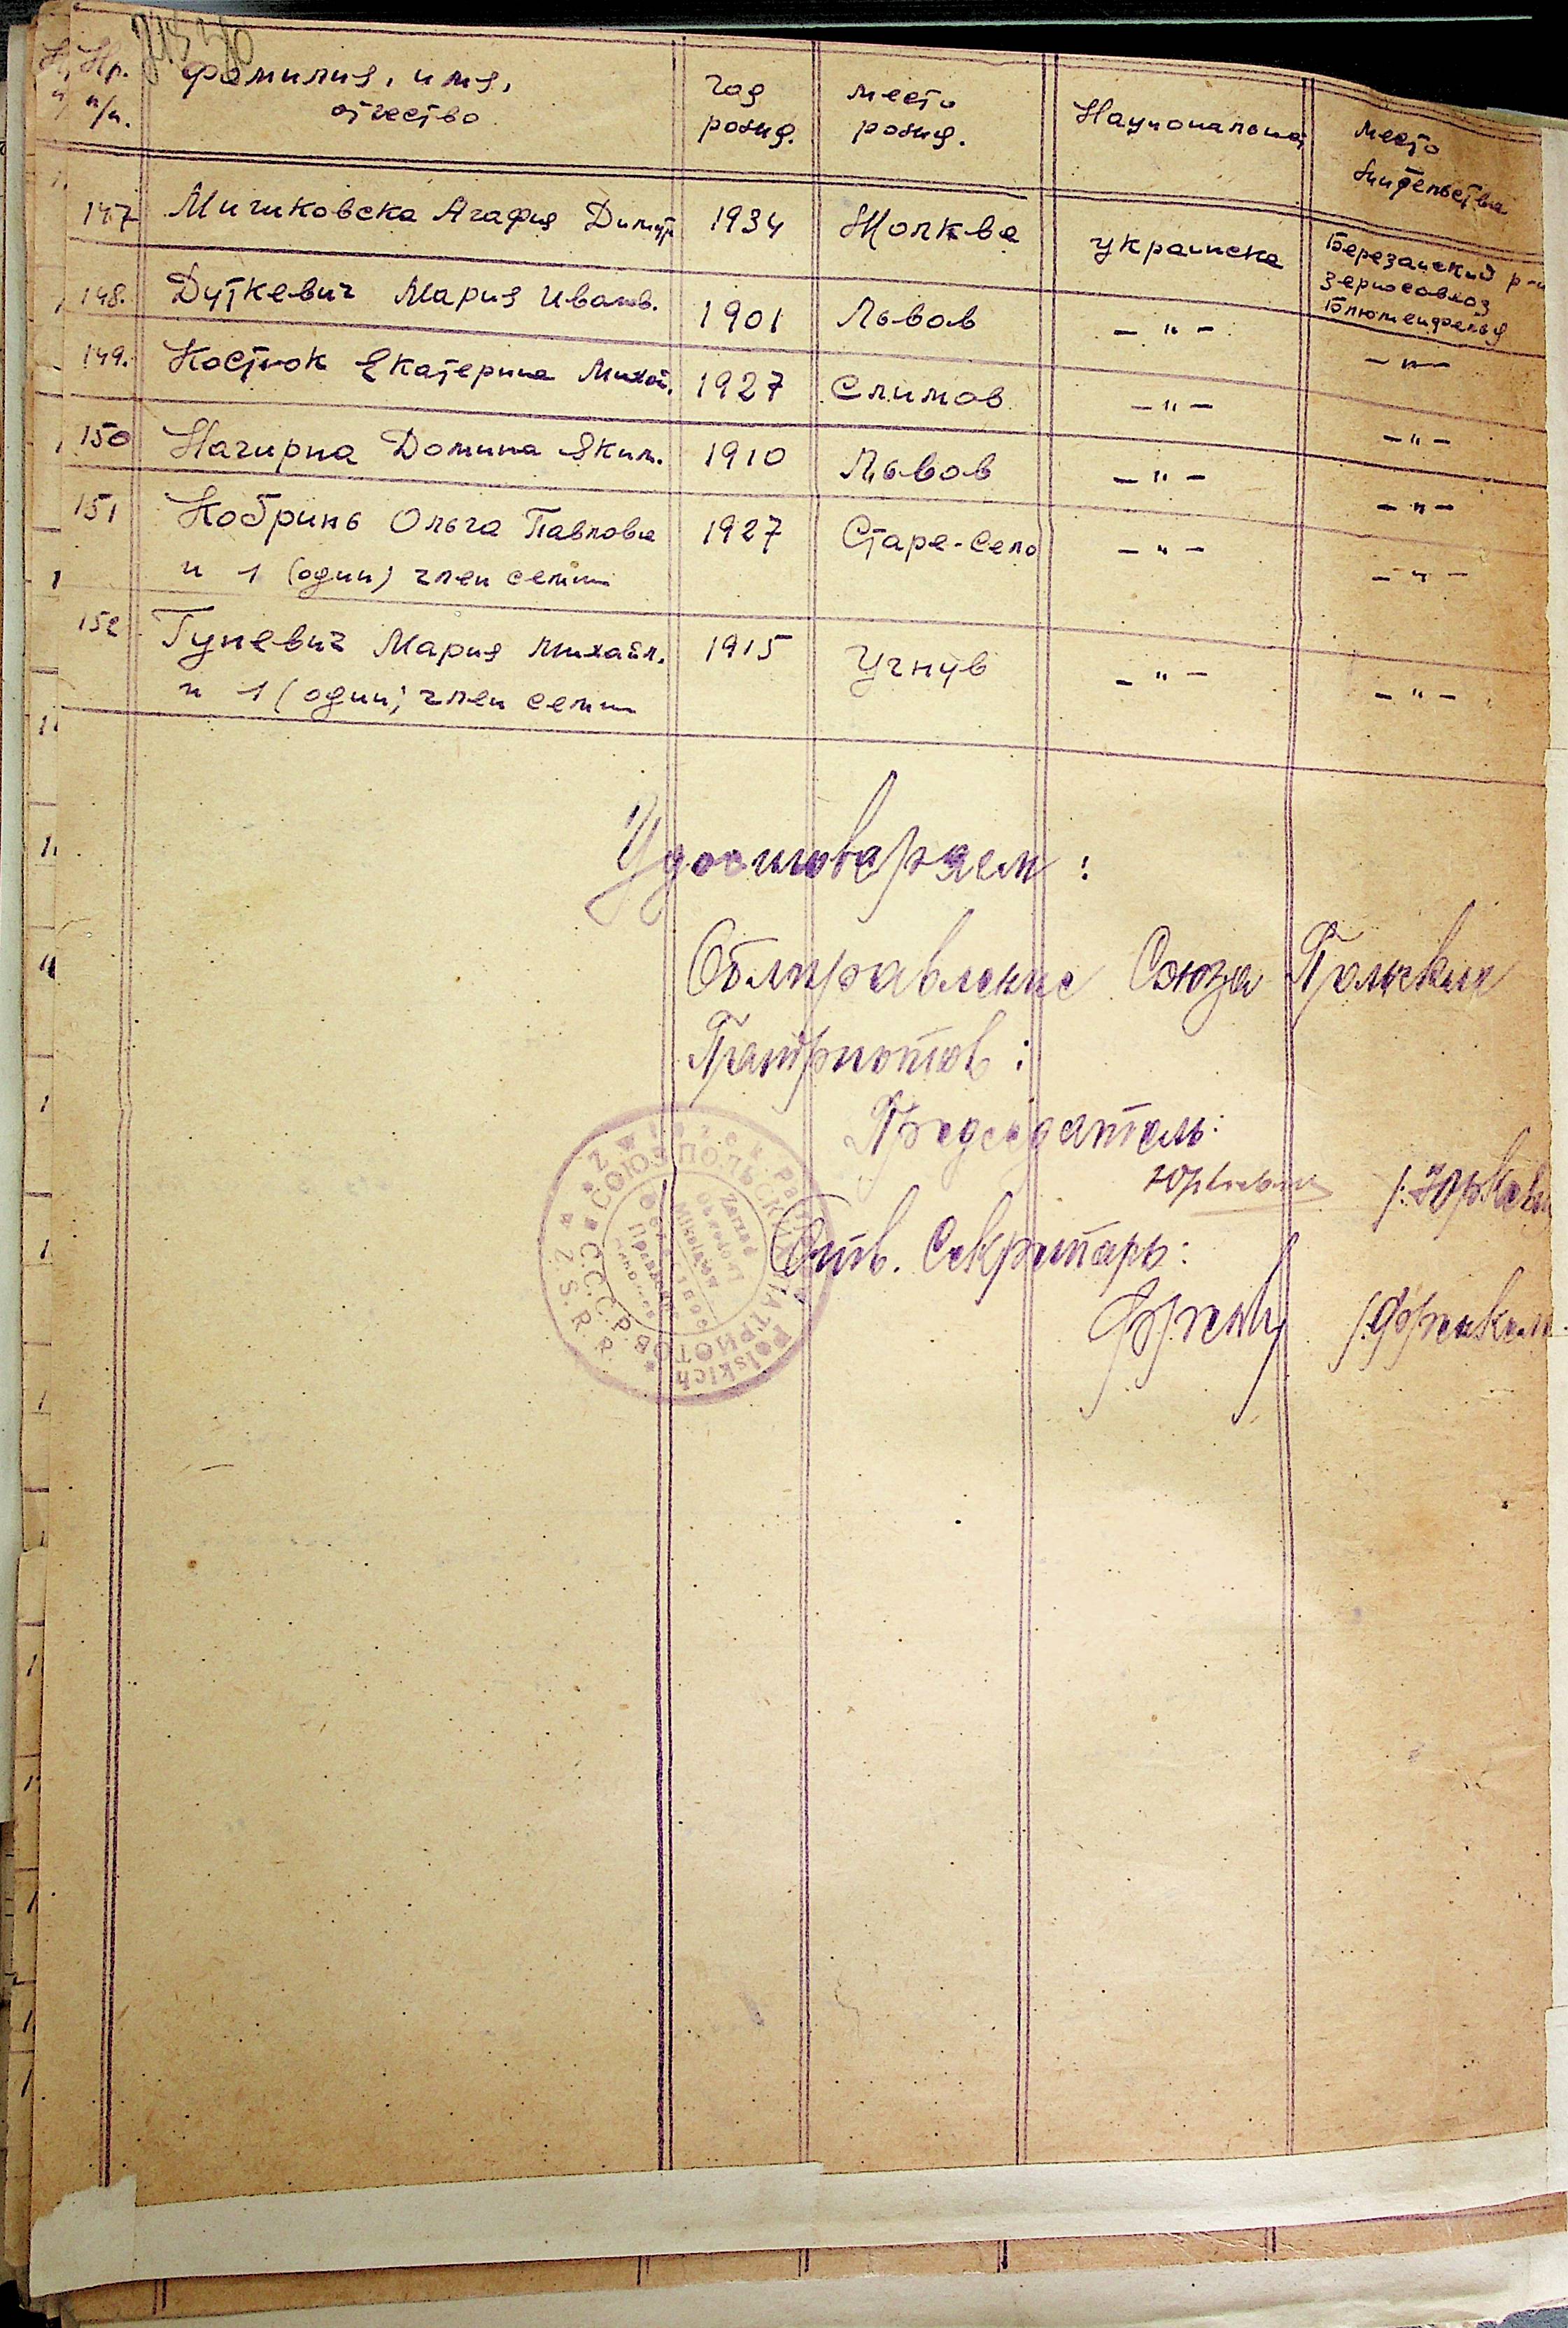 Нр. п/п. Фамилия, имя, отчество год рожд. место рожд. Национальност место жительства
147 Мичиковска Агафия Димитр 1934 Жолква украинска Березанский р-н зерносовхоз Блюменфельд
148. Дуткевич Мария Иванов. 1901 Львов – " – – " –
149. Костюк Екатерина Михай. 1927 Слимов – " – – " –
150 Нагирна Домина Яким. 1910 Львов – " – – " –
151 Кобринь Ольга Павловна 1927 Старе-Село – " – – " –
и 1 (один) член семьи
152 Гуневич Мария Михайл. 1915 Угнув – " – – " –
и 1 (один) член семьи
Удостоверяем:
Облправление Союза Польских
Патриотов:
Председатель:
Отв. Секретарь:
/Френкель
СОЮЗ ПОЛЬСКИХ ПАТРИОТОВ В С.С.С.Р.
Polskich
Z.S.R.R.
Zarząd